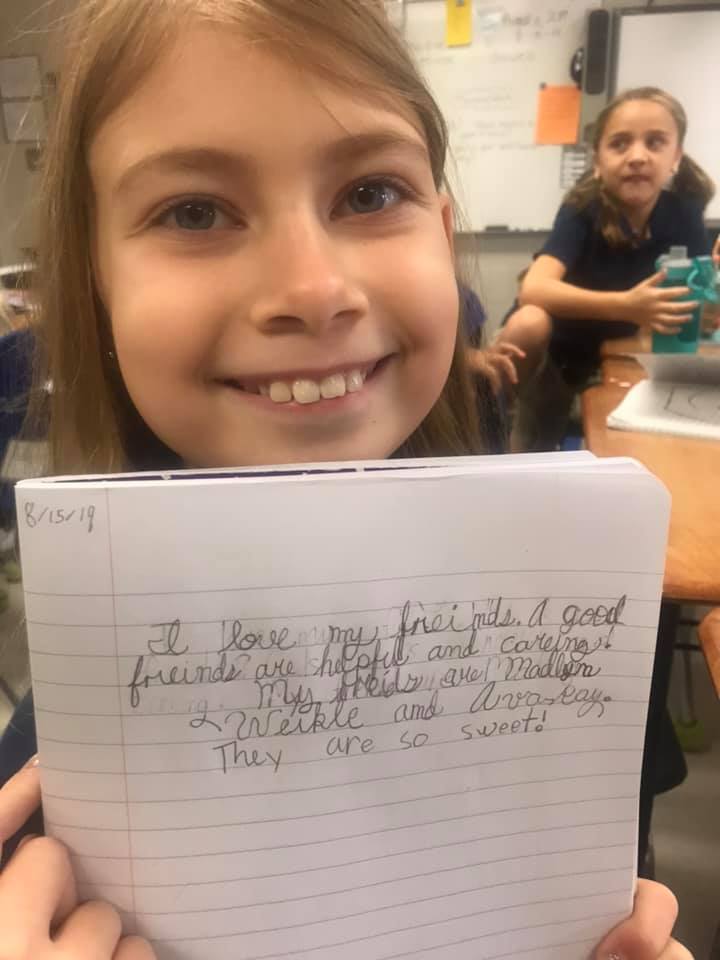 8/15/19
I love my freinds. A good
freinds are helpful and careing!
My freids are Madlyn
Weikle and Ava-Kay.
They are so sweet!